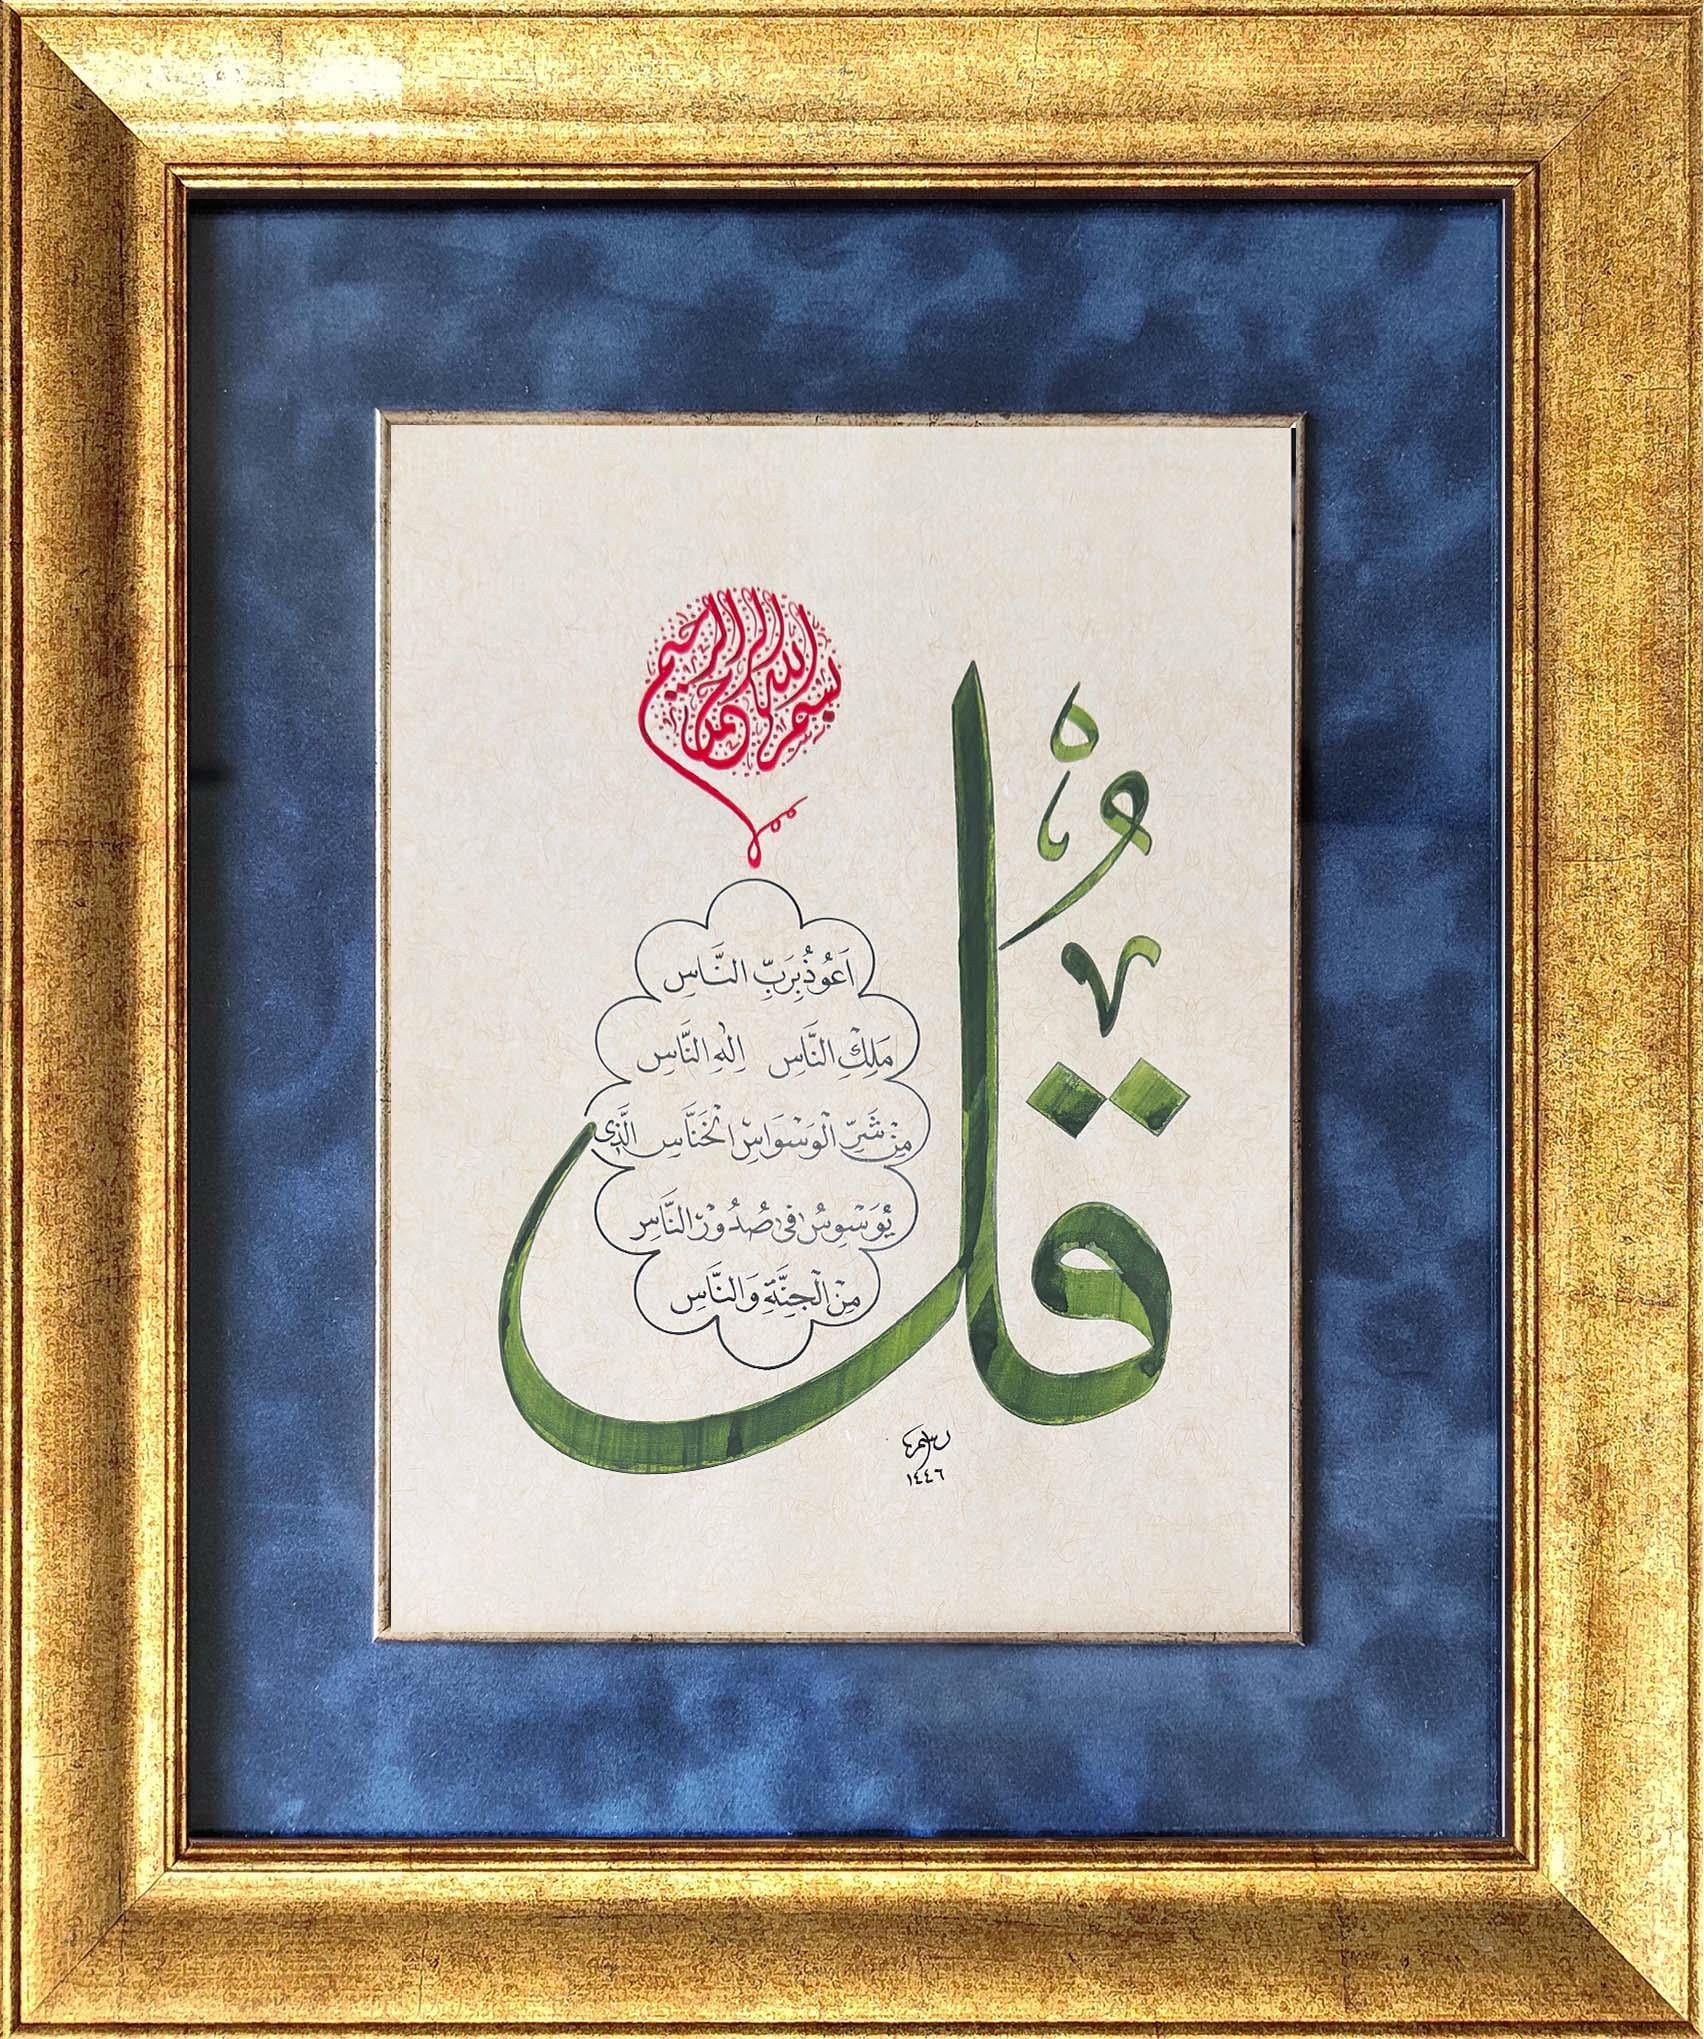 بسم الله الرحمن الرحيم
قُل
اَعُوذُ بِرَبِّ النَّاسِ
مَلِكِ النَّاسِ اِلٰهِ النَّاسِ
مِنْ شَرِّ الْوَسْوَاسِ الْخَنَّاسِ الَّذِى
يُوَسْوِسُ فِى صُدُورِ النَّاسِ
مِنَ الْجِنَّةِ وَالنَّاسِ
١٤٤٦